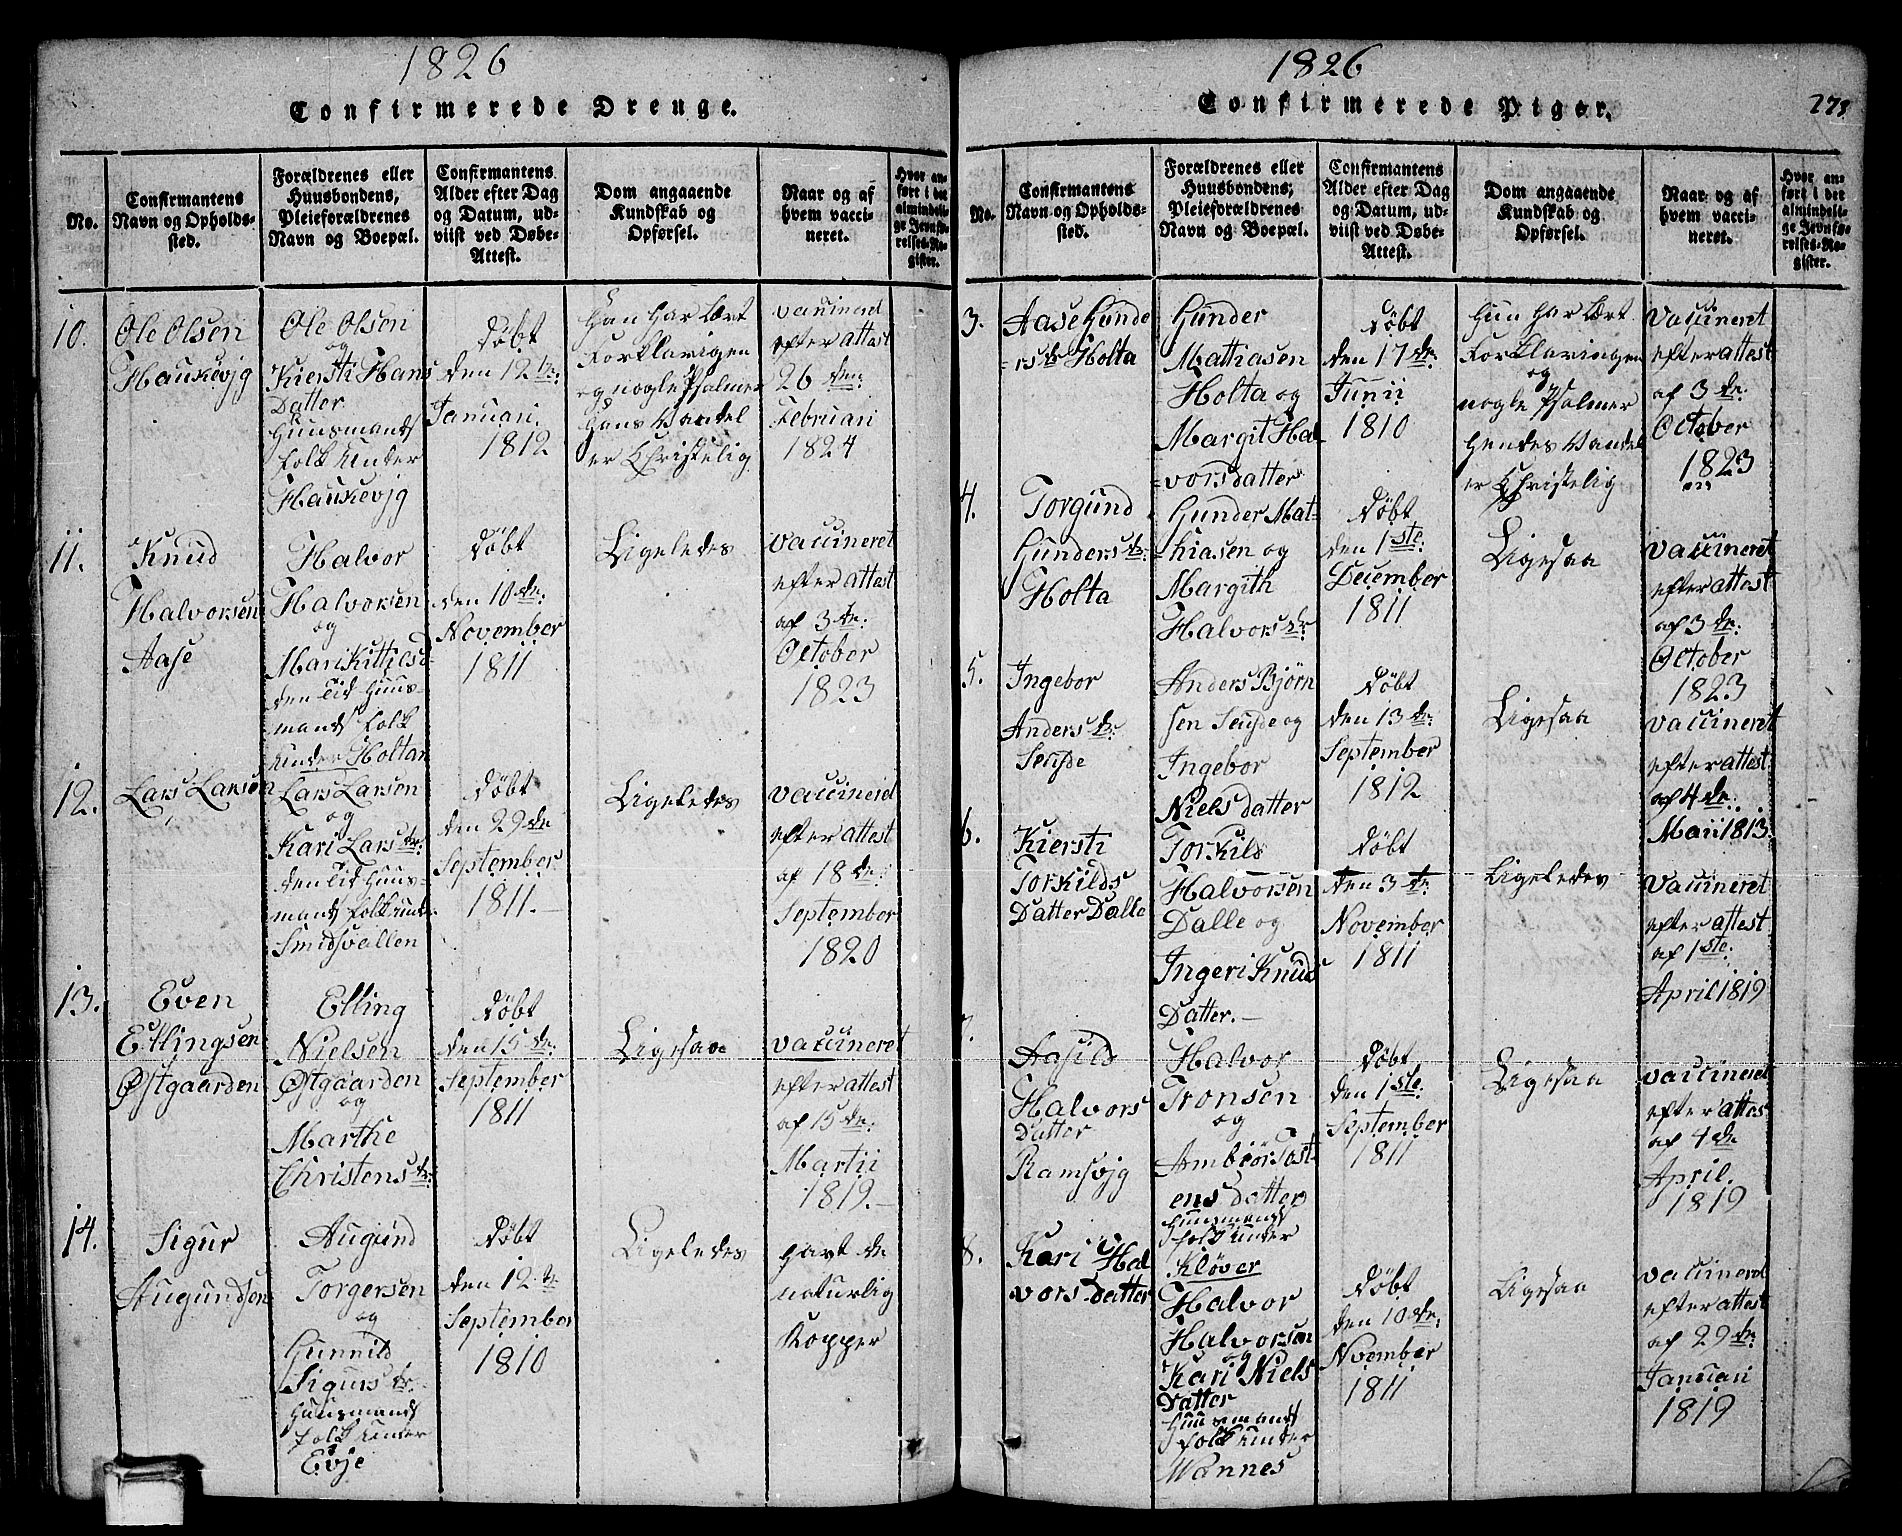 1826
Confirmerede Drenge.
No.
Confirmantens
Navn og Opholds-
sted.
Forældrenes eller
Huusbondens,
Pleieforældrenes
Navn og Boepæl.
Confirmantens
Alder efter Dag
og Datum, ud-
viist ved Døbe-
Attest.
Dom angaaende
Kundskab og
Opførsel.
Naar og af
hvem vacci-
neret.
Hvor an-
ført i det
almindeli-
ge Jevnfø-
relses-Re-
gister.
10.
Ole Olsen
Haukevjg
Ole Olsen
og
Kiersti Hans
Datter
Huusmands
folk under
Haukevjg
Døbt
den 12te:
Januari.
1812
Han har lært
Forklarigen
og nogle Psalmer
hans Vandel
er Christelig
vaccineret
efter attest
26 den:
Februari
1824
11.
Knud
Halvorsen
Aase
Halvor
Halvorsen
og
Mari Kittilsd
den tid Huus-
mands folk
under Holtan
Døbt
den 10de:
November
1811
Ligeledes
vaccineret
efter attest
af 3de:
October
1823
12.
Lars Larsen
Lars Larsen
og
Kari Larsdr:
den tid Huus-
mands folk und:
Smidsvallen
Døbt
den 29de
September
1811.-
Ligeledes
vaccineret
efter attest
af 18de:
September
1820
13.
Even
Ellingsen
Østgaarden
Elling
Nielsen
Østgaarden
og
Marthe
Christensdr:
Døbt
den 15de:
September
1811
Ligesaa
vaccineret
efter attest
af 15de:
Martii
1819.-
14.
Sigur
Augundsen
Augund
Torgersen
og
Gunnild
Sigursdr:
Huusmands
folk under
Evje
Døbt
den 12te
September
1810
Ligeledes
havt de
naturlig
Kopper
1826
Confirmerede Piger.
273
No.
Confirmantens
Navn og Opholds-
sted.
Forældrenes eller
Huusbondens,
Pleieforældrenes
Navn og Boepæl.
Confirmantens
Alder efter Dag
og Datum, ud-
viist ved Døbe-
Attest.
Dom angaaende
Kundskab og
Opførsel.
Naar og af
hvem vacci-
neret.
Hvor an-
ført i det
almindeli-
ge Jevnfø-
relses-Re-
gister.
3.
Aase Gunde
=rsdr Holta
Gunder
Mathiasen
Holta og
Margit Hal
=vorsdatter
Døbt
den 17de:
Junii
1810
Hun har lært
Forklaringen
og
nogle Psalmer
hendes Vandel
er Christelig
Vaccineret
efter attest
af 3de:
October
1823
4.
Torgund
Gundersdr:
Holta
Gunder Mat-
hiasen og
Margith
Halvorsdr
Døbt
den 1ste:
December
1811
Ligesaa
vaccineret
efter attest
af 3de:
October
1823
5.
Ingebor
Andersdr:
Anders Bjørn
sen
og
Ingebor
Nielsdatter
Døbt
den 13de:
September
1812
Ligesaa
vaccineret
efter attest
af 4de:
Maii 1813.
6.
Kiersti
Torkilds
Datter Dalle
Torkild
Halvorsen
Dalle og
Ingeri Knuds
Datter.-
Døbt
den 3de
November
1811
Ligeledes
vaccineret
efter attest
af 1ste:
April 1819
7.
Aasild
Halvors
Datter
Ramsvjg
Halvor
Tronsen
og
Ambiør Tost-
ensdatter
Huusmands
folk under
Kløver
Døbt
den 1ste:
September
1811
Ligesaa
vaccineret
efter attes
af 4de
April.
1819
8.
Kari Hal
vorsdatter
Halvor
Halvorsen
og
Kari Niels
Datter
Huusmands
folk under
Wannes
Døbt
den 10de:
November
1811
Ligesaa
vaccineret
efter attest
af 29de:
Januari
1819